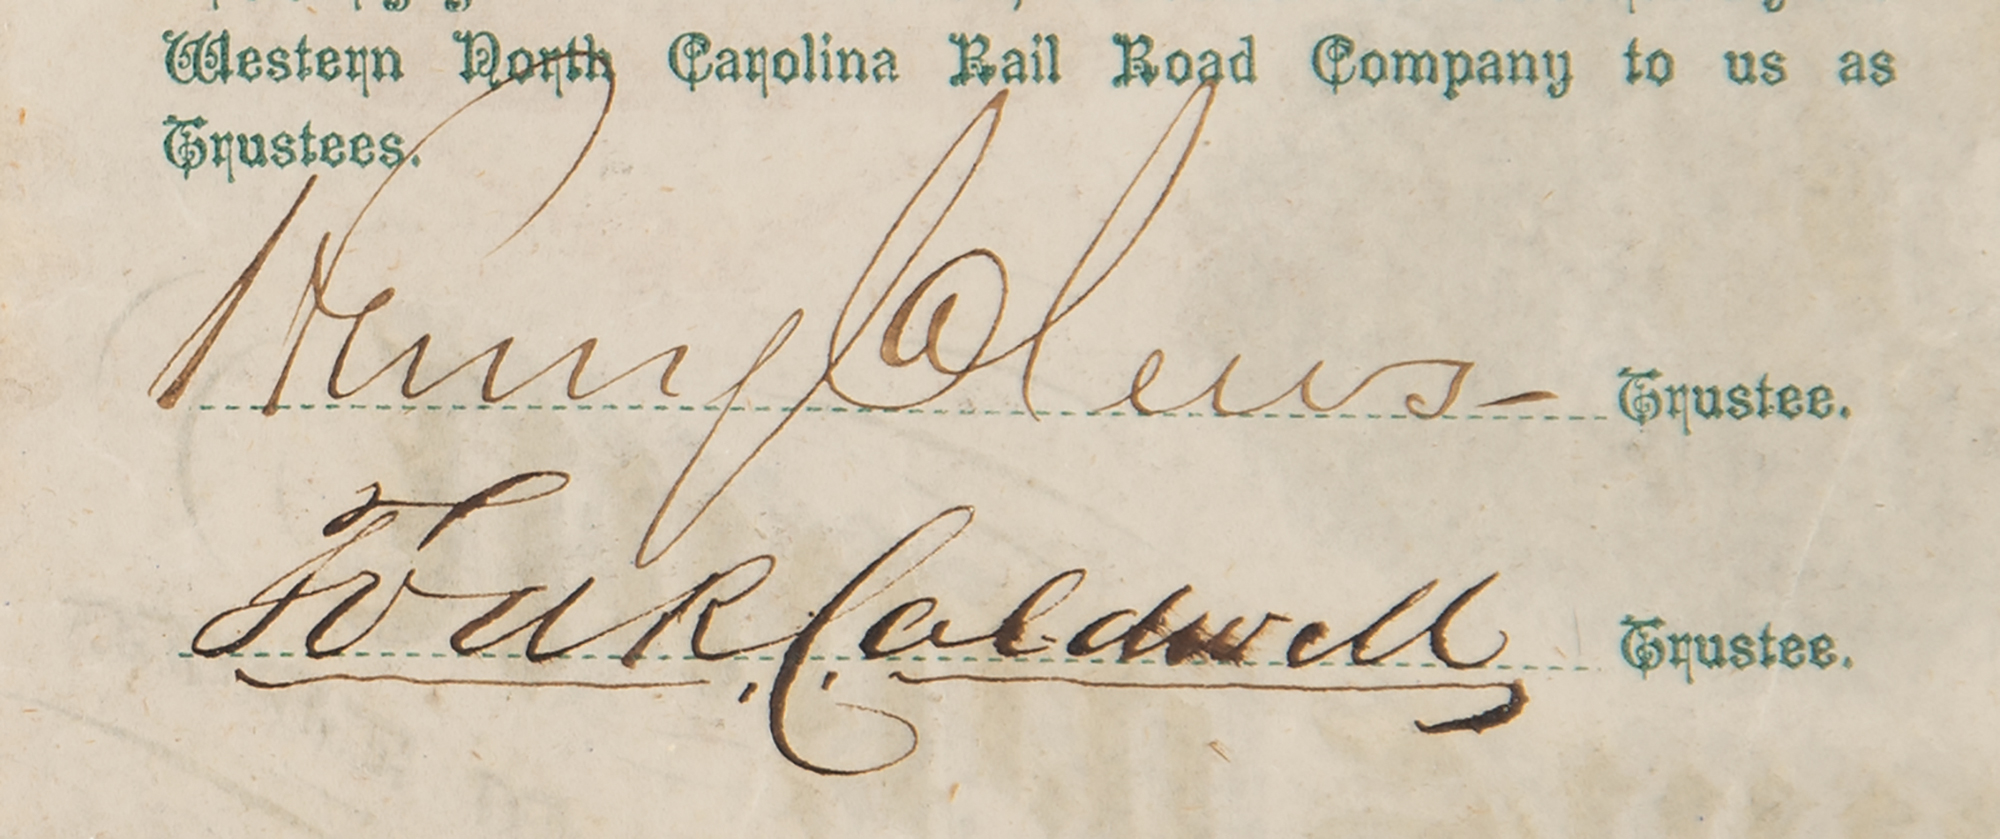 Western North Carolina Rail Road Company to us as
Trustees.
Henry Clews Trustee.
Tod R Caldwell Trustee.